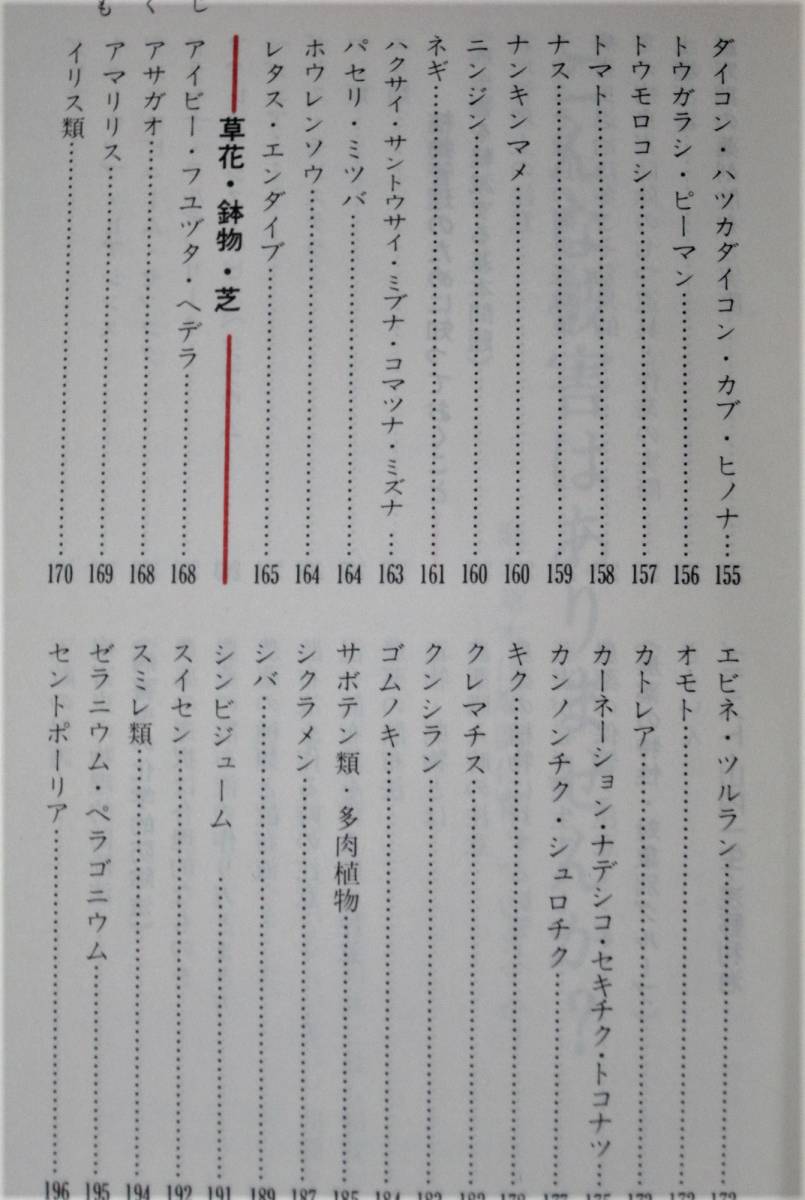 もくじ
ダイコン・ハツカダイコン・カブ・ヒノナ…155
トウガラシ・ピーマン…156
トウモロコシ…157
トマト…158
ナス…159
ナンキンマメ…160
ニンジン…160
ネギ…161
ハクサイ・サントウサイ・ミブナ・コマツナ・ミズナ…163
パセリ・ミツバ…164
ホウレンソウ…164
レタス・エンダイブ…165
草花・鉢物・芝
アイビー・フユヅタ・ヘデラ…168
アサガオ…168
アマリリス…169
イリス類…170
エビネ・ツルラン…
オモト…
カトレア…
カーネーション・ナデシコ・セキチク・トコナツ…
カンノンチク・シュロチク…
キク…
クレマチス…
クンシラン…
ゴムノキ…184
サボテン類・多肉植物…185
シクラメン…187
シバ…189
シンビジューム…191
スイセン…192
スミレ類…194
ゼラニウム・ペラゴニウム…195
セントポーリア…196